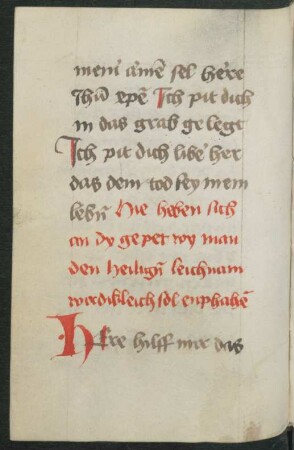 meni amē sel herre
Jhū xpē Ich pit dich
in das grab gelegt
Ich pit dich liber her
das dein tod sey mein
lebn̄ Hie heben sich
an dy gepet wy man
den heilign̄ leichnam
wirdikleich sol enphahē
Herre hilff mir das